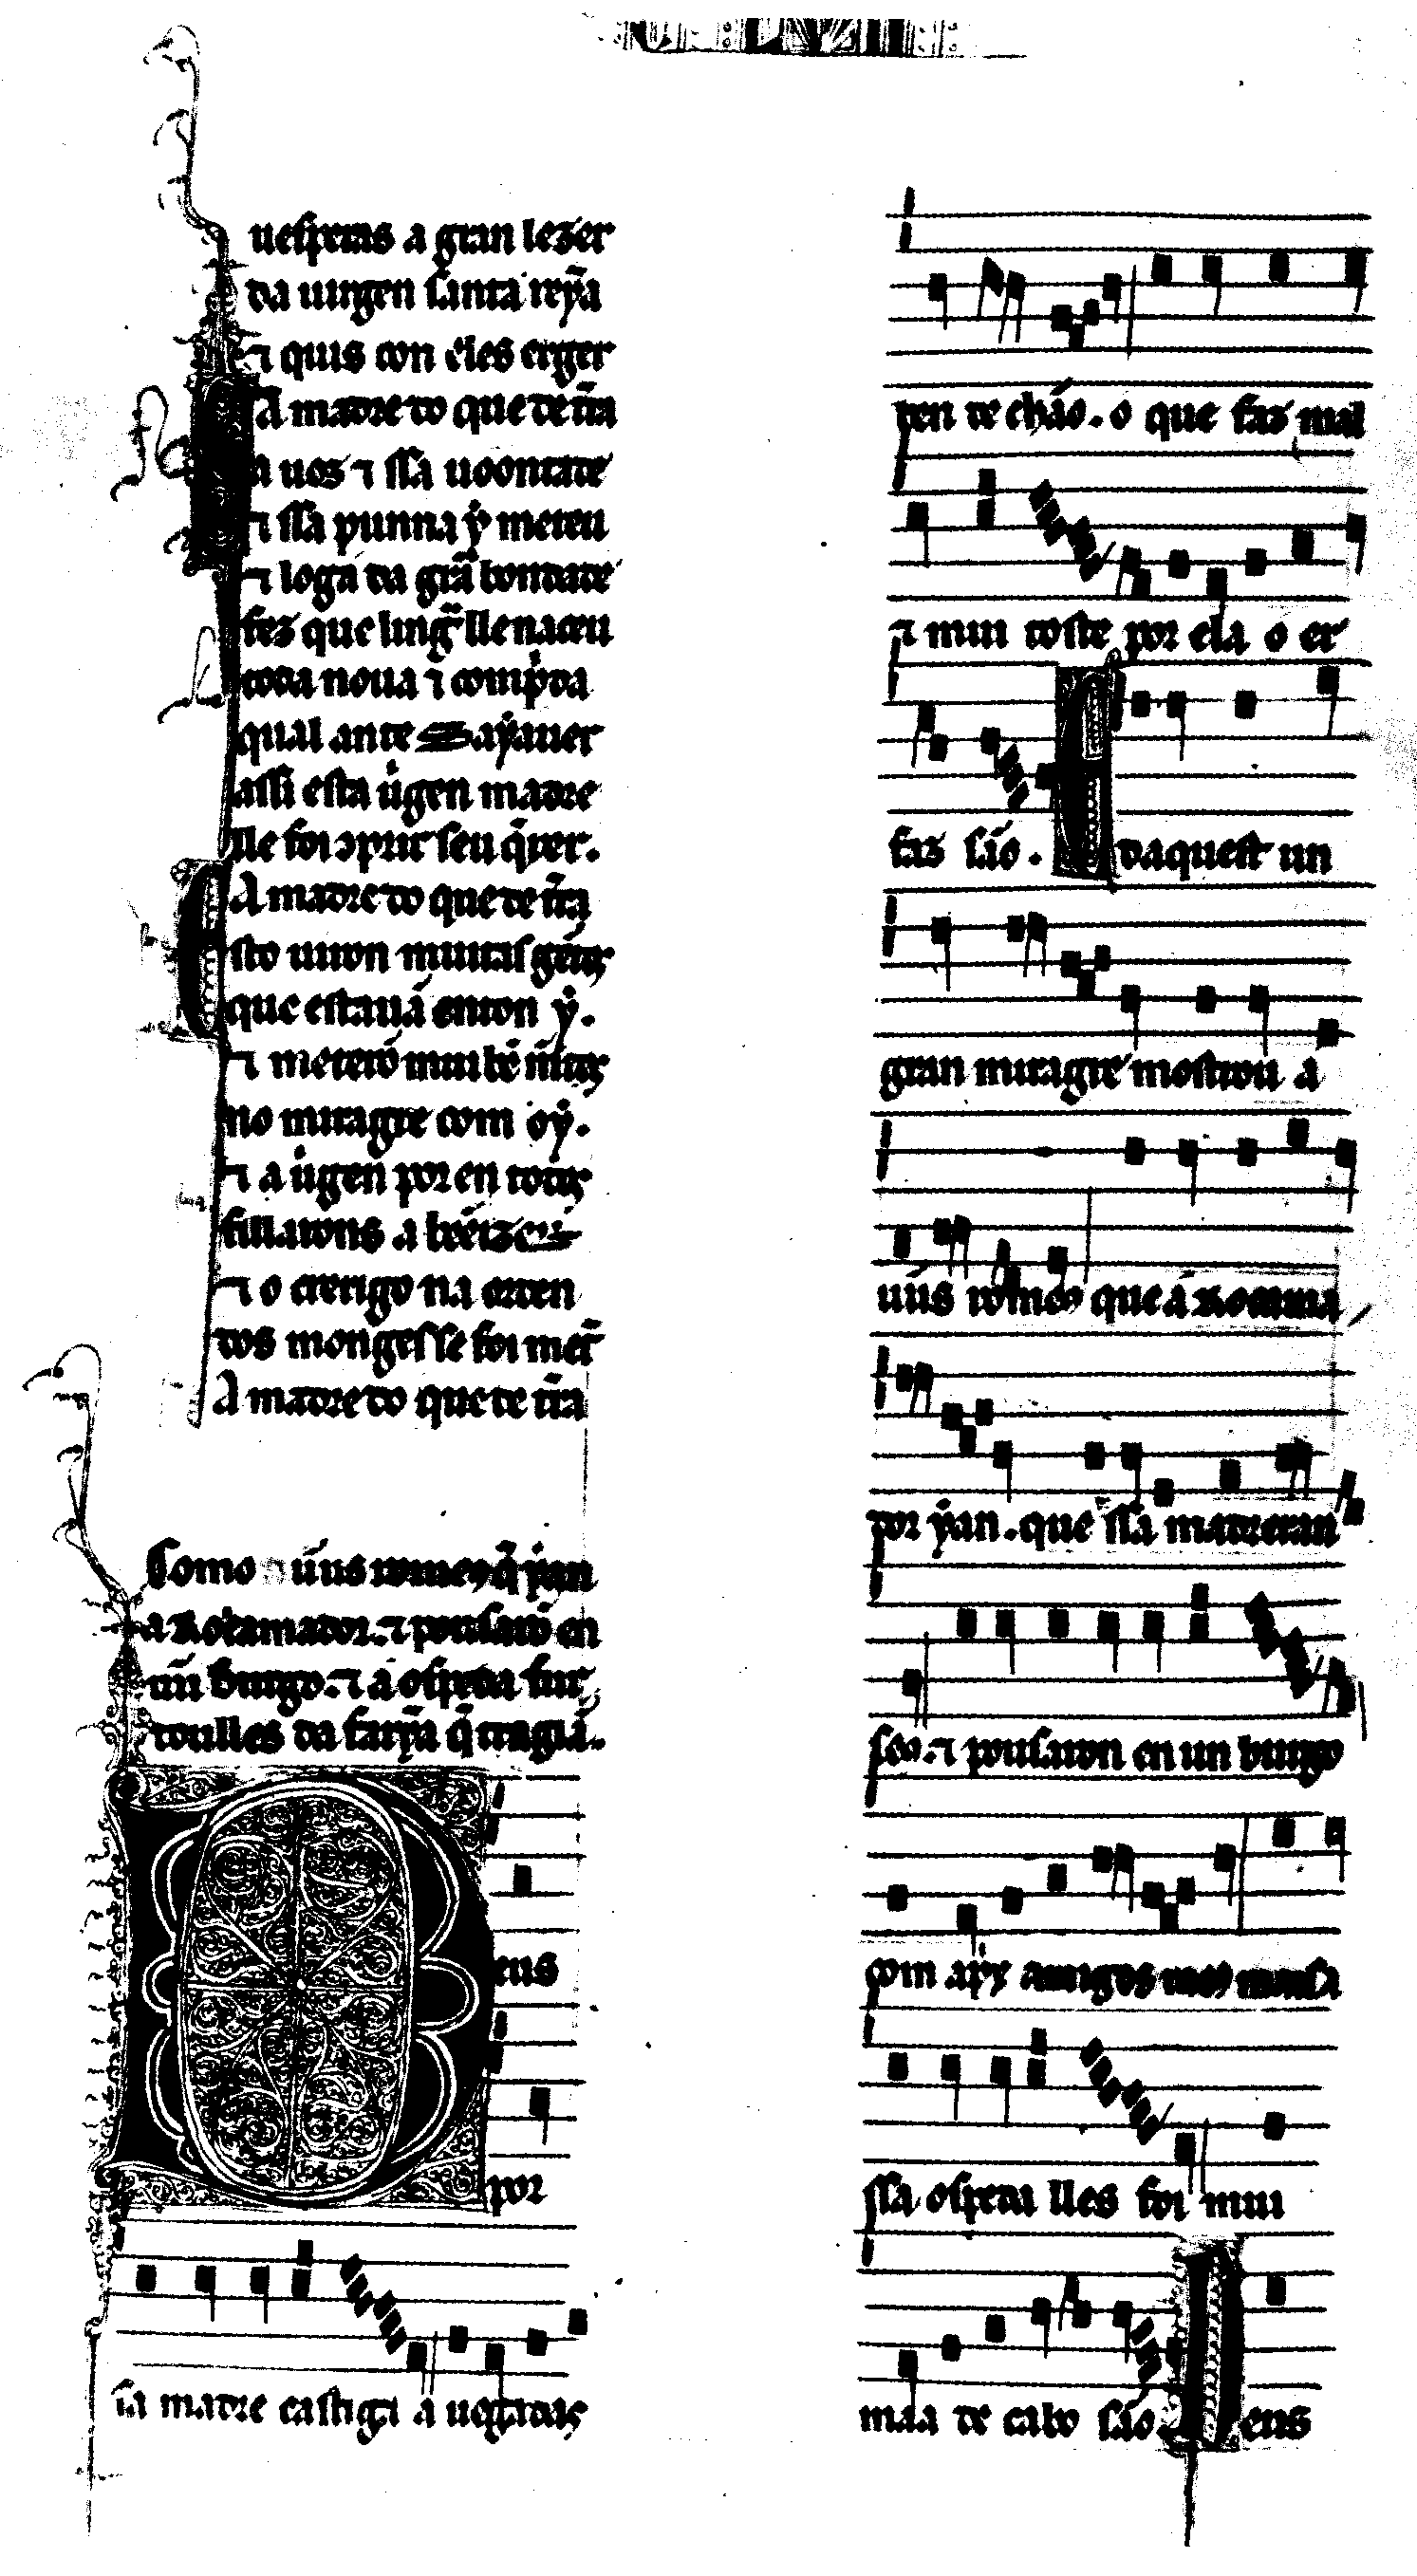 uesperas a gran lezer
da uirgen santa reỹa
⁊ quis con eles erger
A madre do que de nr̃a
a uos ⁊ ssa uoontade
⁊ ssa punna ẏ meteu
⁊ loga da grã bondade
fez que
toda noua ⁊ comprida
qual ante
assi esta uirgen madre
lle foi seu q̃rer.
A madre do que de nr̃a
sto uiron muitas gẽtes
que estauã enton ẏ.
⁊ meterõ mui bẽ mẽtes
no miragre com oẏ.
⁊ a uirgen por en todos
fillarons a bẽeizer
⁊ o crerigo na orden
dos monges se foi meter
A madre do que de nr̃a
Como ũus romeus q̃ ẏan
a Rocamador. ⁊ pousarõ en
un burgo. ⁊ a ospeda fur
toulles da farỹa q̃ tragiã.
eus
por
sa madre castiga a uegadas
ben de chão. o que faz mal
⁊ mui toste por ela o er
faz são. E daquest un
gran miragre mostrou a
ũus romeus que a Rocama
dor ẏan. que ssa madre en
seu. ⁊ pousaron en un burgo
com aprix amigos mas
ssa ospeda lles foi mui
maa de cabo são D eus